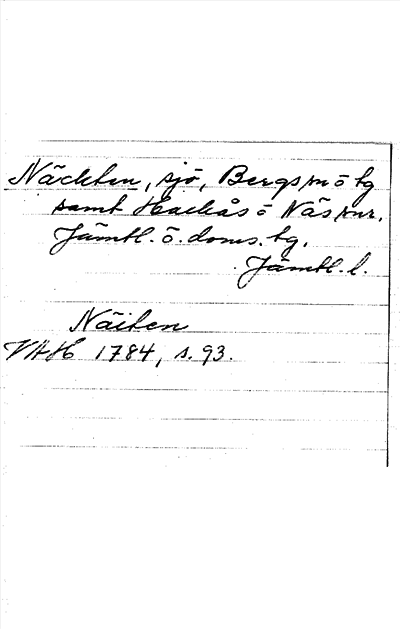 Näckten, sjö, Bergs sn ö tg
samt Hackås o Näs snr.
Jämtl. ö. doms. tg.
Jämtl. l.
Näiten
VAH 1784, s. 93.